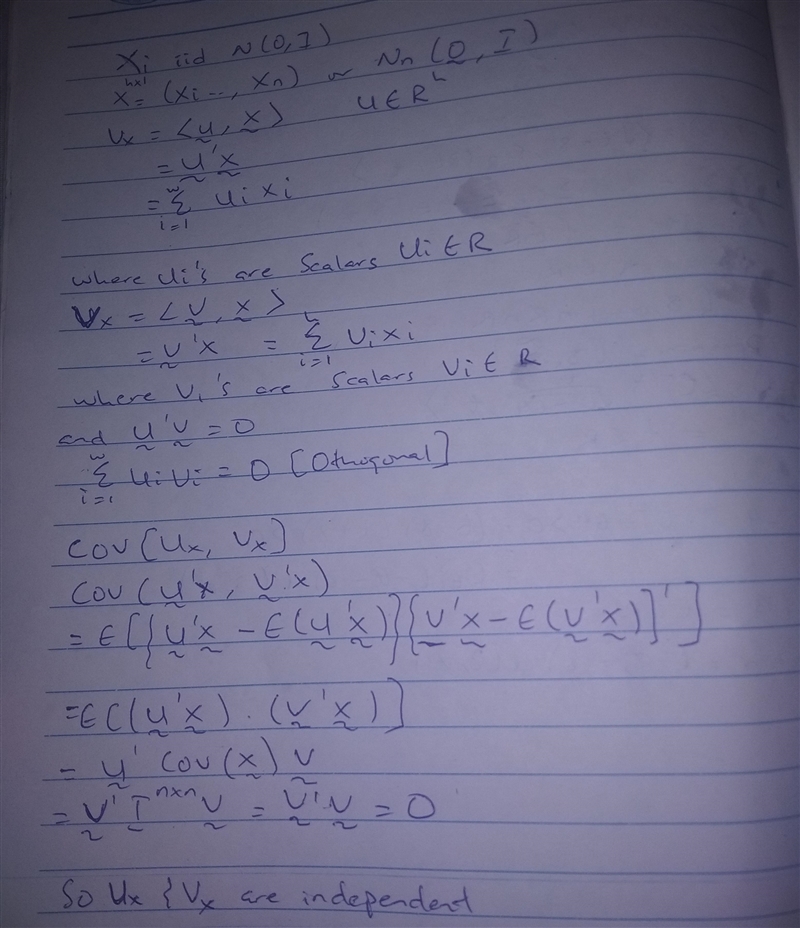 Xi iid N(0,I)
X^{n×1} = (Xi..., Xn) ~ Nn (0, I)
Ux = <u, x> U∈R^n
= u'x
= Σ_{i=1}^{n} ui xi
where Ui's are Scalars Ui∈R
Vx = <v, x>
= v'x = Σ_{i=1}^{n} Vi xi
where Vi's are Scalars Vi∈R
and u'v = 0
Σ_{i=1}^{n} UiVi = 0 [Othogonal]
COV[Ux, Vx]
COV(u'x, v'x)
= E[{u'x - E(u'x)}{v'x - E(v'x)]']
= E[(u'x) . (v'x)]
= u' COV(x) v
= v' I^{n×n} v = v'v = 0
So Ux { Vx are independent